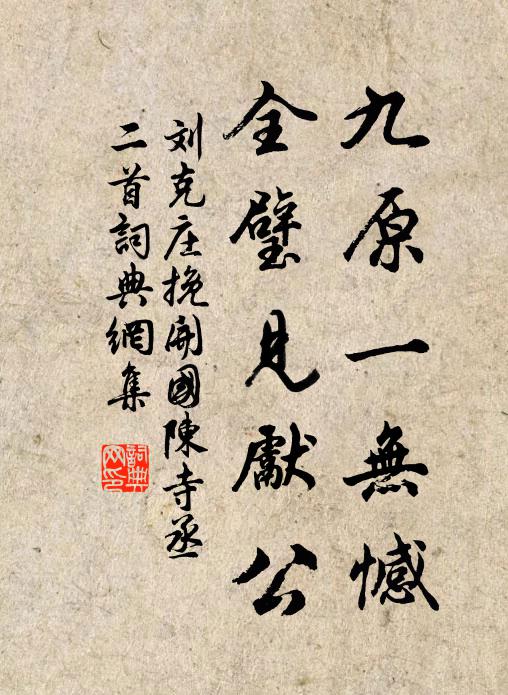 九原一無憾
全璧見獻公
刘克庄挽開國陳寺丞
二首詞典網集
詞典网印